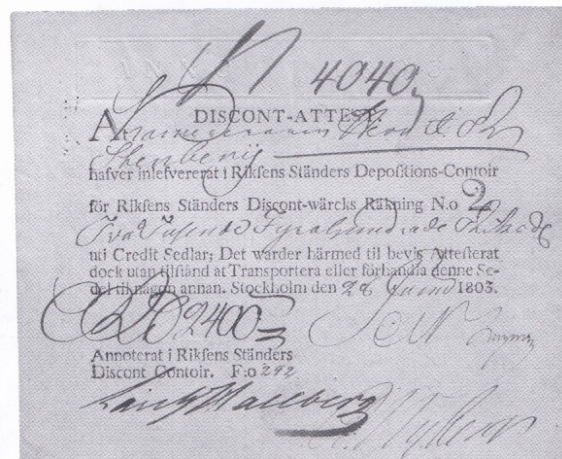 N 4040.
DISCONT-ATTEST.
Stenberg
hafver inlefvererat i Rikſens Ständers Depoſitions-Contoir
för Rikſens Ständers Discont-wärcks Räkning N.o 2
Två Tuſende Fyrahundrade
uti Credit Sedlar; Det warder härmed til bevis Atteſterat
dock utan tilſtånd at Transportera eller förhandla denne Se-
del til någon annan. Stockholm den 28 Junii 1803.
2400
Annoterat i Rikſens Ständers
Discont Contoir. F:o 292
Hallberg